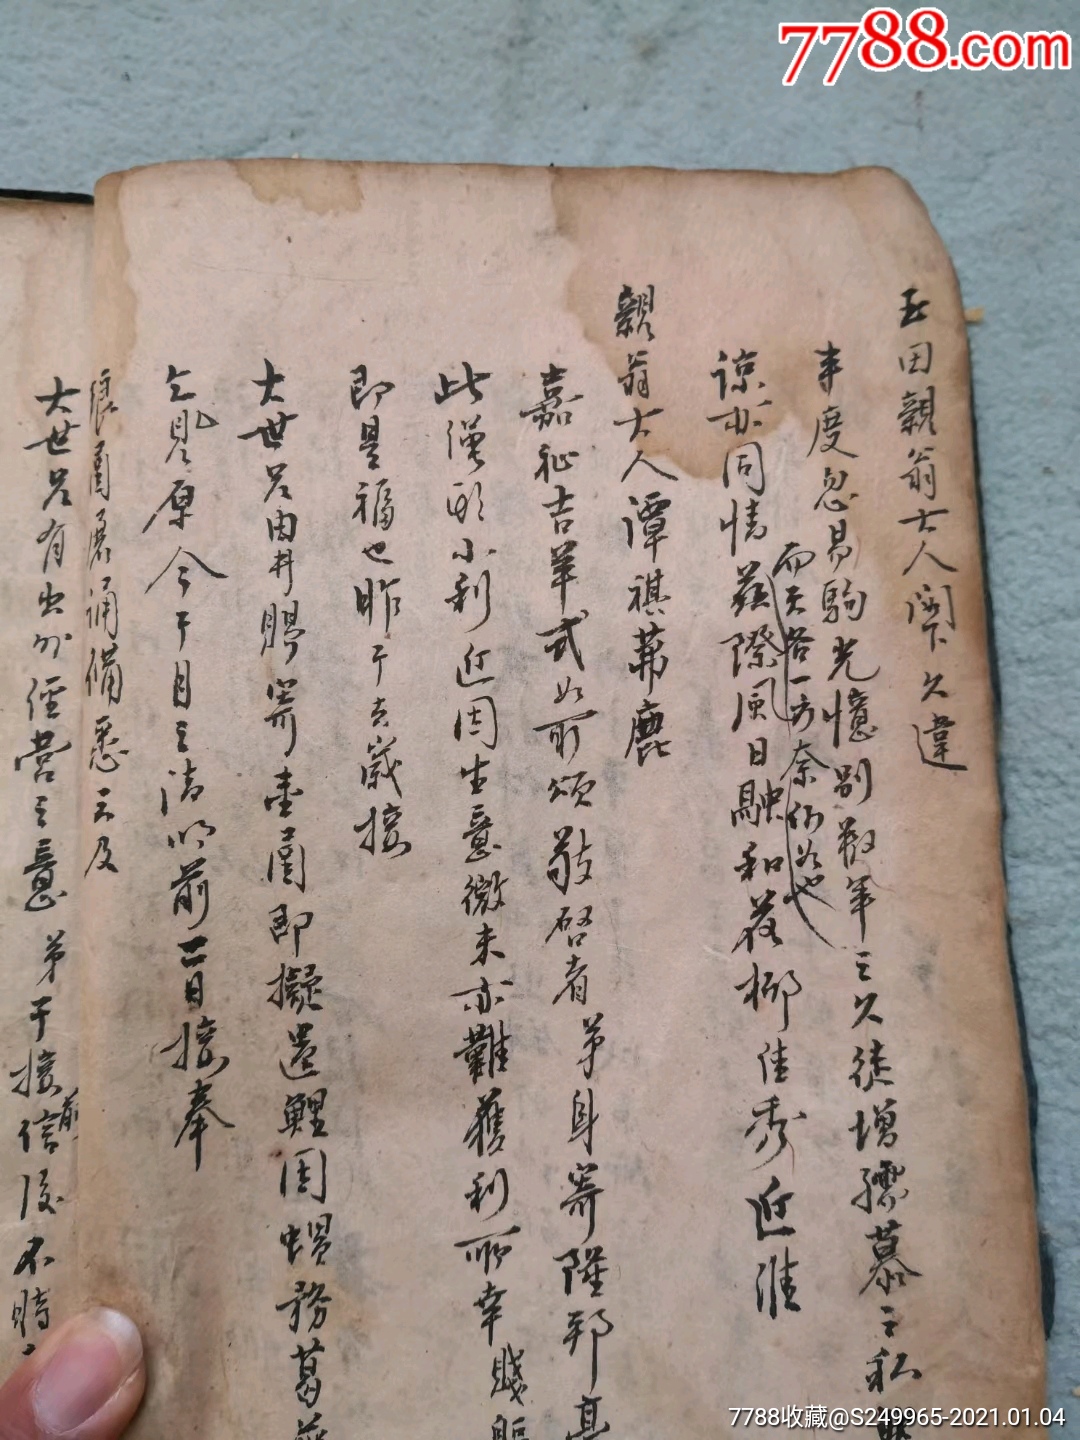 7788.com
玉田親翁大人閣下久違
丰度忽易駒光憶別数年之久徒增孺慕之私
而天各一方奈何如也
諒亦同情茲際風日融和花柳佳秀近淮
親翁大人潭祺茀鹿
嘉祉吉羊式如所頌敬啓者弟身寄陲邦
此僅職小利近因生意微末亦難獲利所幸賤軀
即是福也昨于去歲接
大世兄由井賜寄壹函即擬還鯉因蝟務葛
乞見原今于月之清明前二日接奉
琅函展誦備悉云及
大世兄有出外經營之意弟于接信後不時
前
7788收藏@S249965-2021.01.04